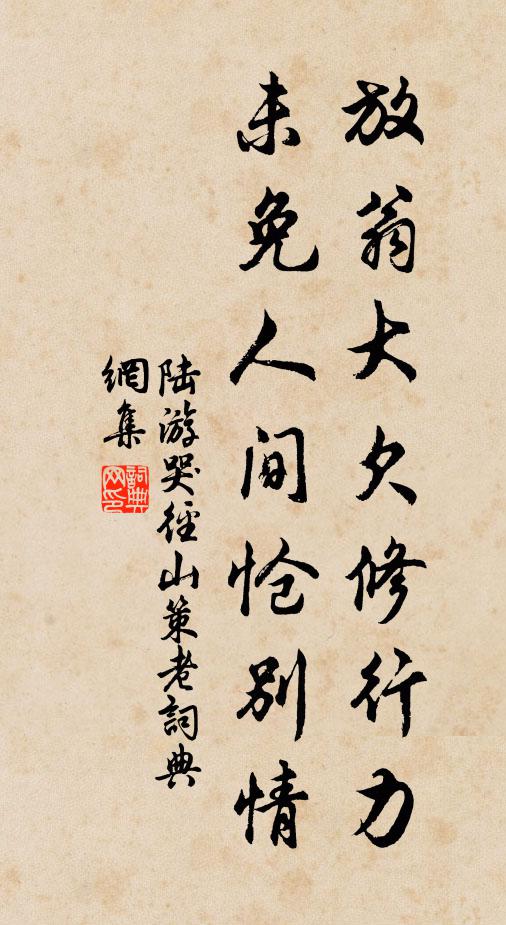 放翁大欠修行力
未免人间怆别情
陆游哭径山策老詞典
網集
詞典
网印